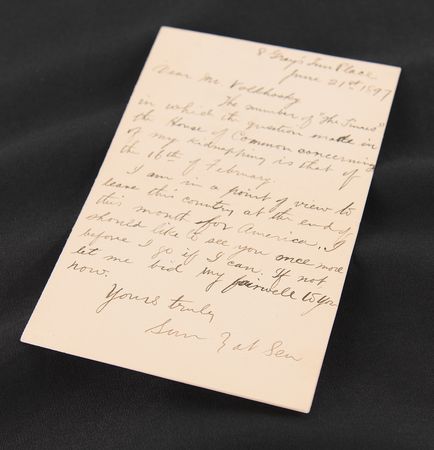 8 Gray's Inn Place
June 21st 1897
Dear Mr Volkhosky
The number of "The Times"
in which the question made in
the House of Common concerning
of my kidnapping is that of
the 16th of February.
I am in a point of view to
leave this country at the end of
this month for America. I
should like to see you once more
before I go if I can. If not
let me bid my fairwell to you
now.
Yours truly
Sun Yat Sen